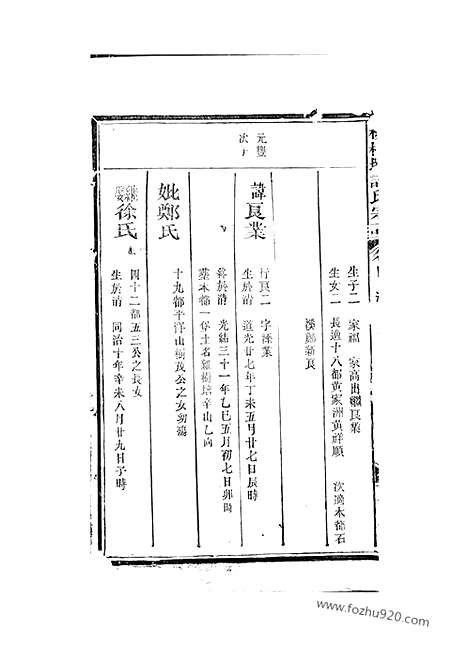 生子二 家福 家高出繼良業
生女二 長適十八都黃家洲黃祥順 次適本都石
溪鄭新良
元豐
次子
諱良業
行良二 字添業
生於清 道光廿七年丁未五月廿七日辰時
終於清 光緒三十一年乙巳五月初七日卯時
葬本都一保土名雞樹培辛山乙向
妣鄭氏
十九都平洋山樹茂公之女幼殤
徐氏
四十二都五三公之長女
生於清 同治十年辛未八月廿九日子時
www.fozhu920.com